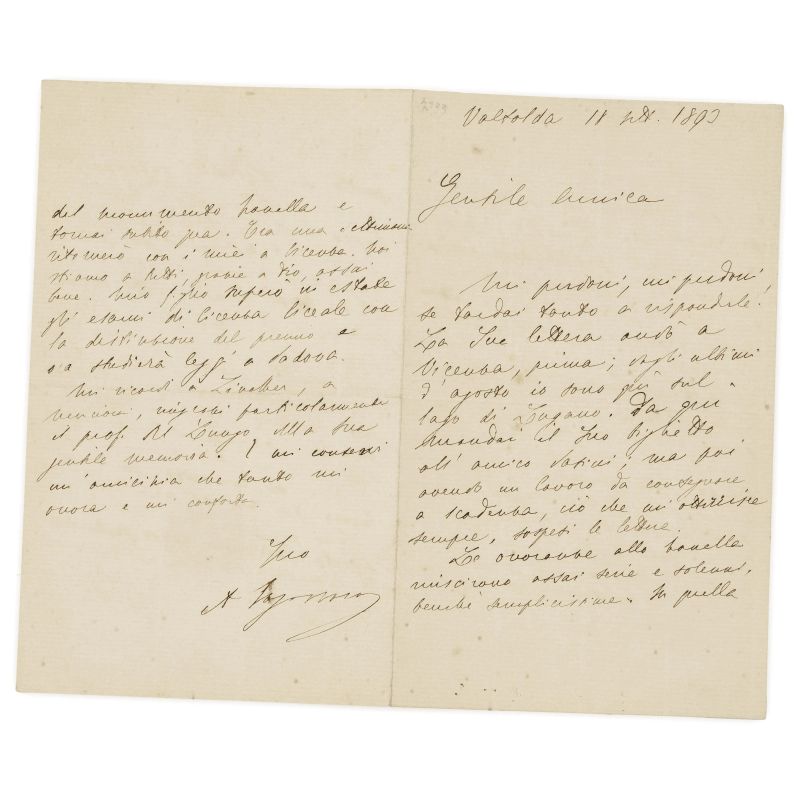 Valsolda 18 sett. 1893
Gentile Amica
Mi perdoni, mi perdoni,
se tardai tanto a risponderle!
La Sua lettera andò a
Vicenza, prima; negli ultimi
d'agosto io sono già sul
lago di Lugano. Da qui
mandai il Suo biglietto
all'amico; ma poi
avendo un lavoro da consegnare
a scadenza, ciò che mi
sempre, sospesi le lettere.
Le onoranze allo Zanella
riuscirono assai serie e solenni,
benché semplicissime. In quella
del monumento Zanella e
tornai subito qua. Tra una settimana
ritornerò con i miei a Vicenza. Noi
stiamo tutti, grazie a Dio, assai
bene. Mio figlio superò in estate
gli esami di licenza liceale con
la distinzione del premio e
ora studierà leggi a Padova.
Mi ricordi a, a
particolarmente
il prof. Del Lungo alla Sua
gentile memoria. E mi conservi
un'amicizia che tanto mi
onora e mi conforta.
Suo
A Fogazzaro